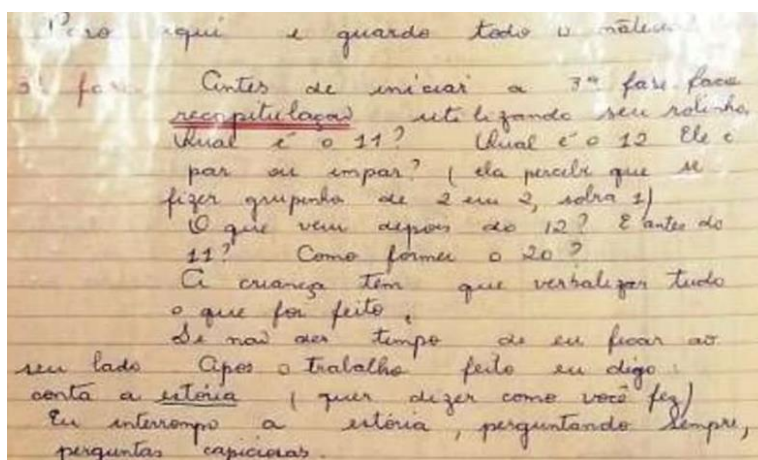 Paro aqui e guardo todo o material
3ª fase. Antes de iniciar a 3ª fase faço
recapitulação utilizando seu rolinho.
Qual é o 11? Qual é o 12 Ele é
par ou impar? (ela percebe que se
fizer grupinho de 2 em 2, sobra 1)
O que vem depois do 12? E antes do
11? Como formei o 20?
A criança tem que verbalizar tudo
o que foi feito.
Se não der tempo de eu ficar ao
seu lado Apos o trabalho feito eu digo:
conta a estória (quer dizer como você fez)
Eu interrompo a estória, perguntando sempre,
perguntas capiciosas.